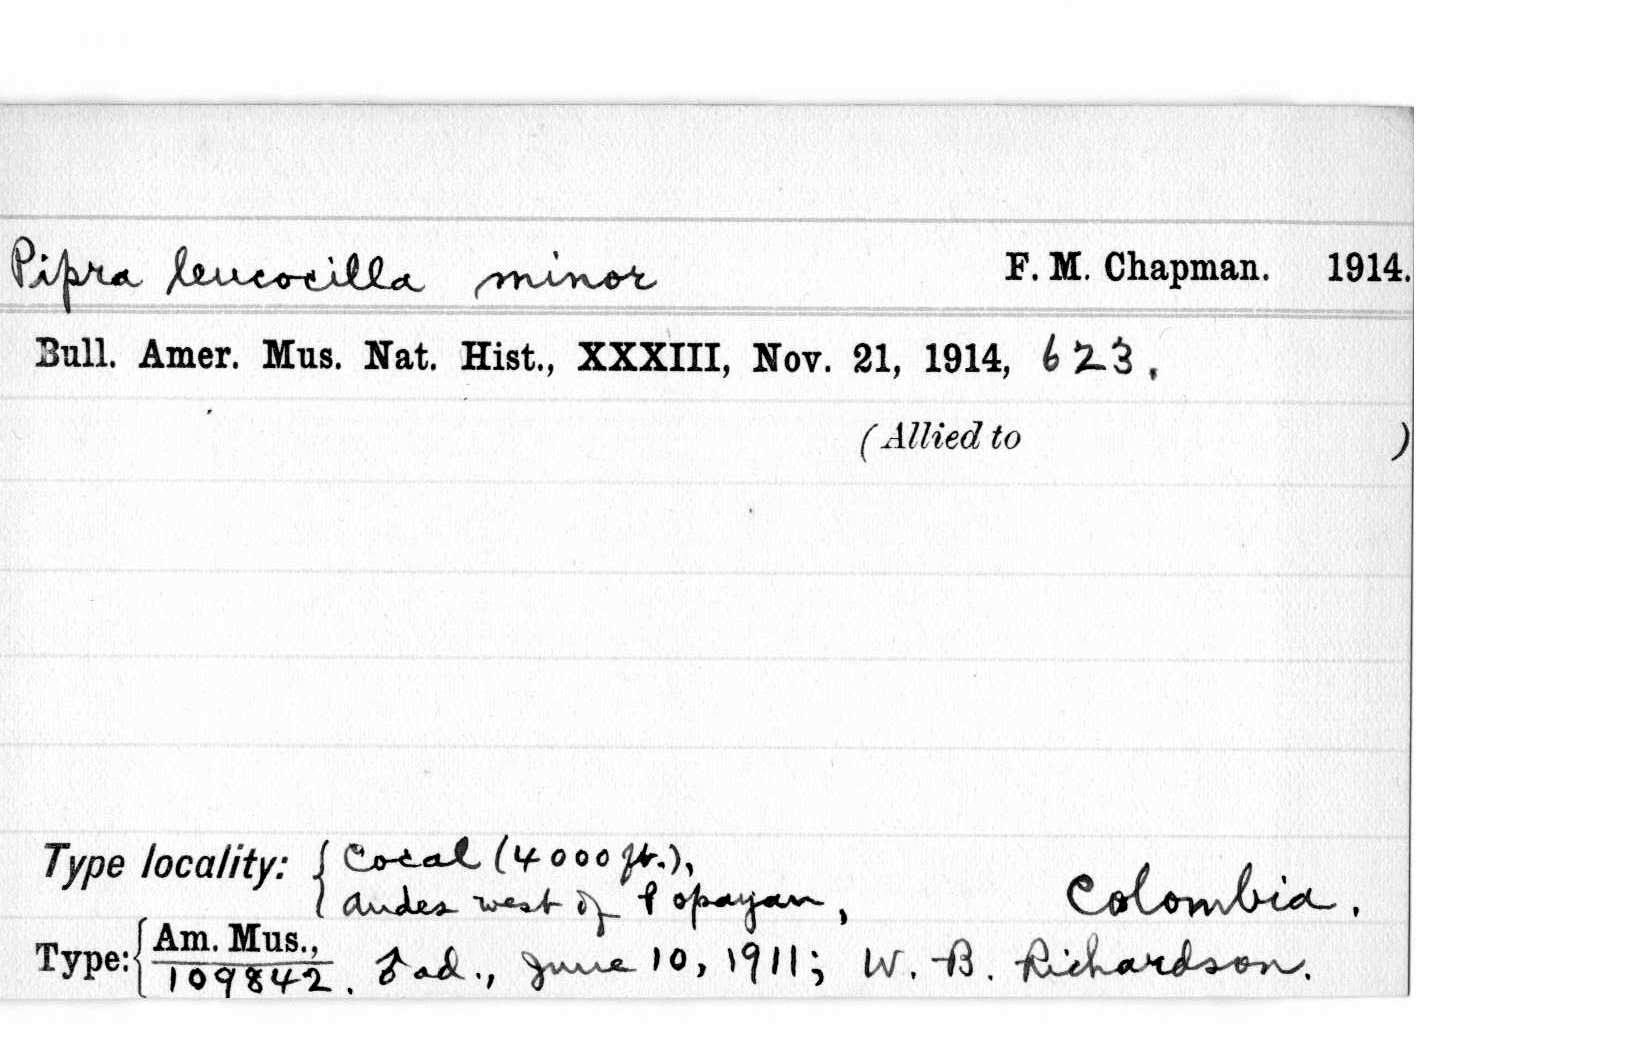 Pipra leucocilla minor F. M. Chapman. 1914.
Bull. Amer. Mus. Nat. Hist., XXXIII, Nov. 21, 1914, 623.
(Allied to )
Type locality: { Cocal (4000 ft.),
Andes west of Popayan, Colombia.
Type: { Am. Mus.,
109842. ♂ ad., June 10, 1911; W. B. Richardson.